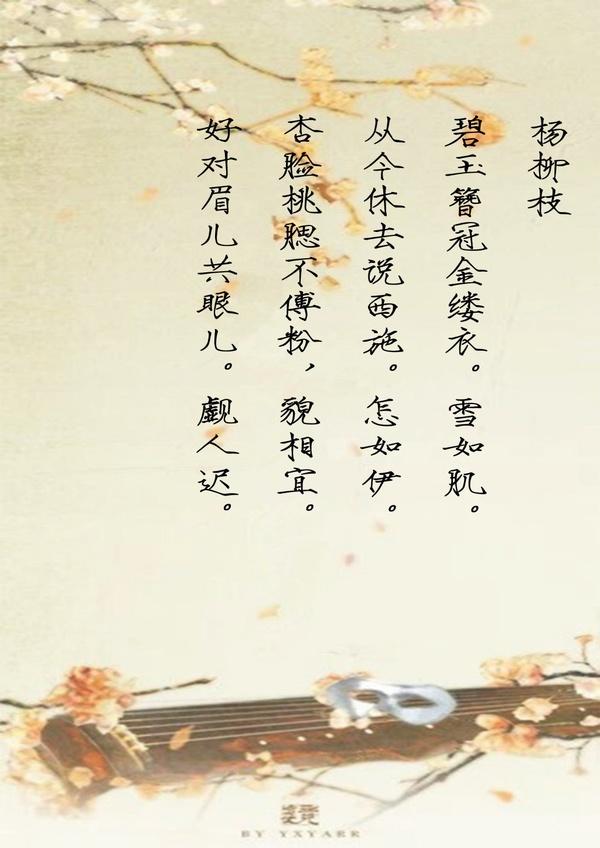 杨柳枝
碧玉簪冠金缕衣。雪如肌。
从今休去说西施。怎如伊。
杏脸桃腮不傅粉，貌相宜。
好对眉儿共眼儿。觑人迟。
BY YXYARR